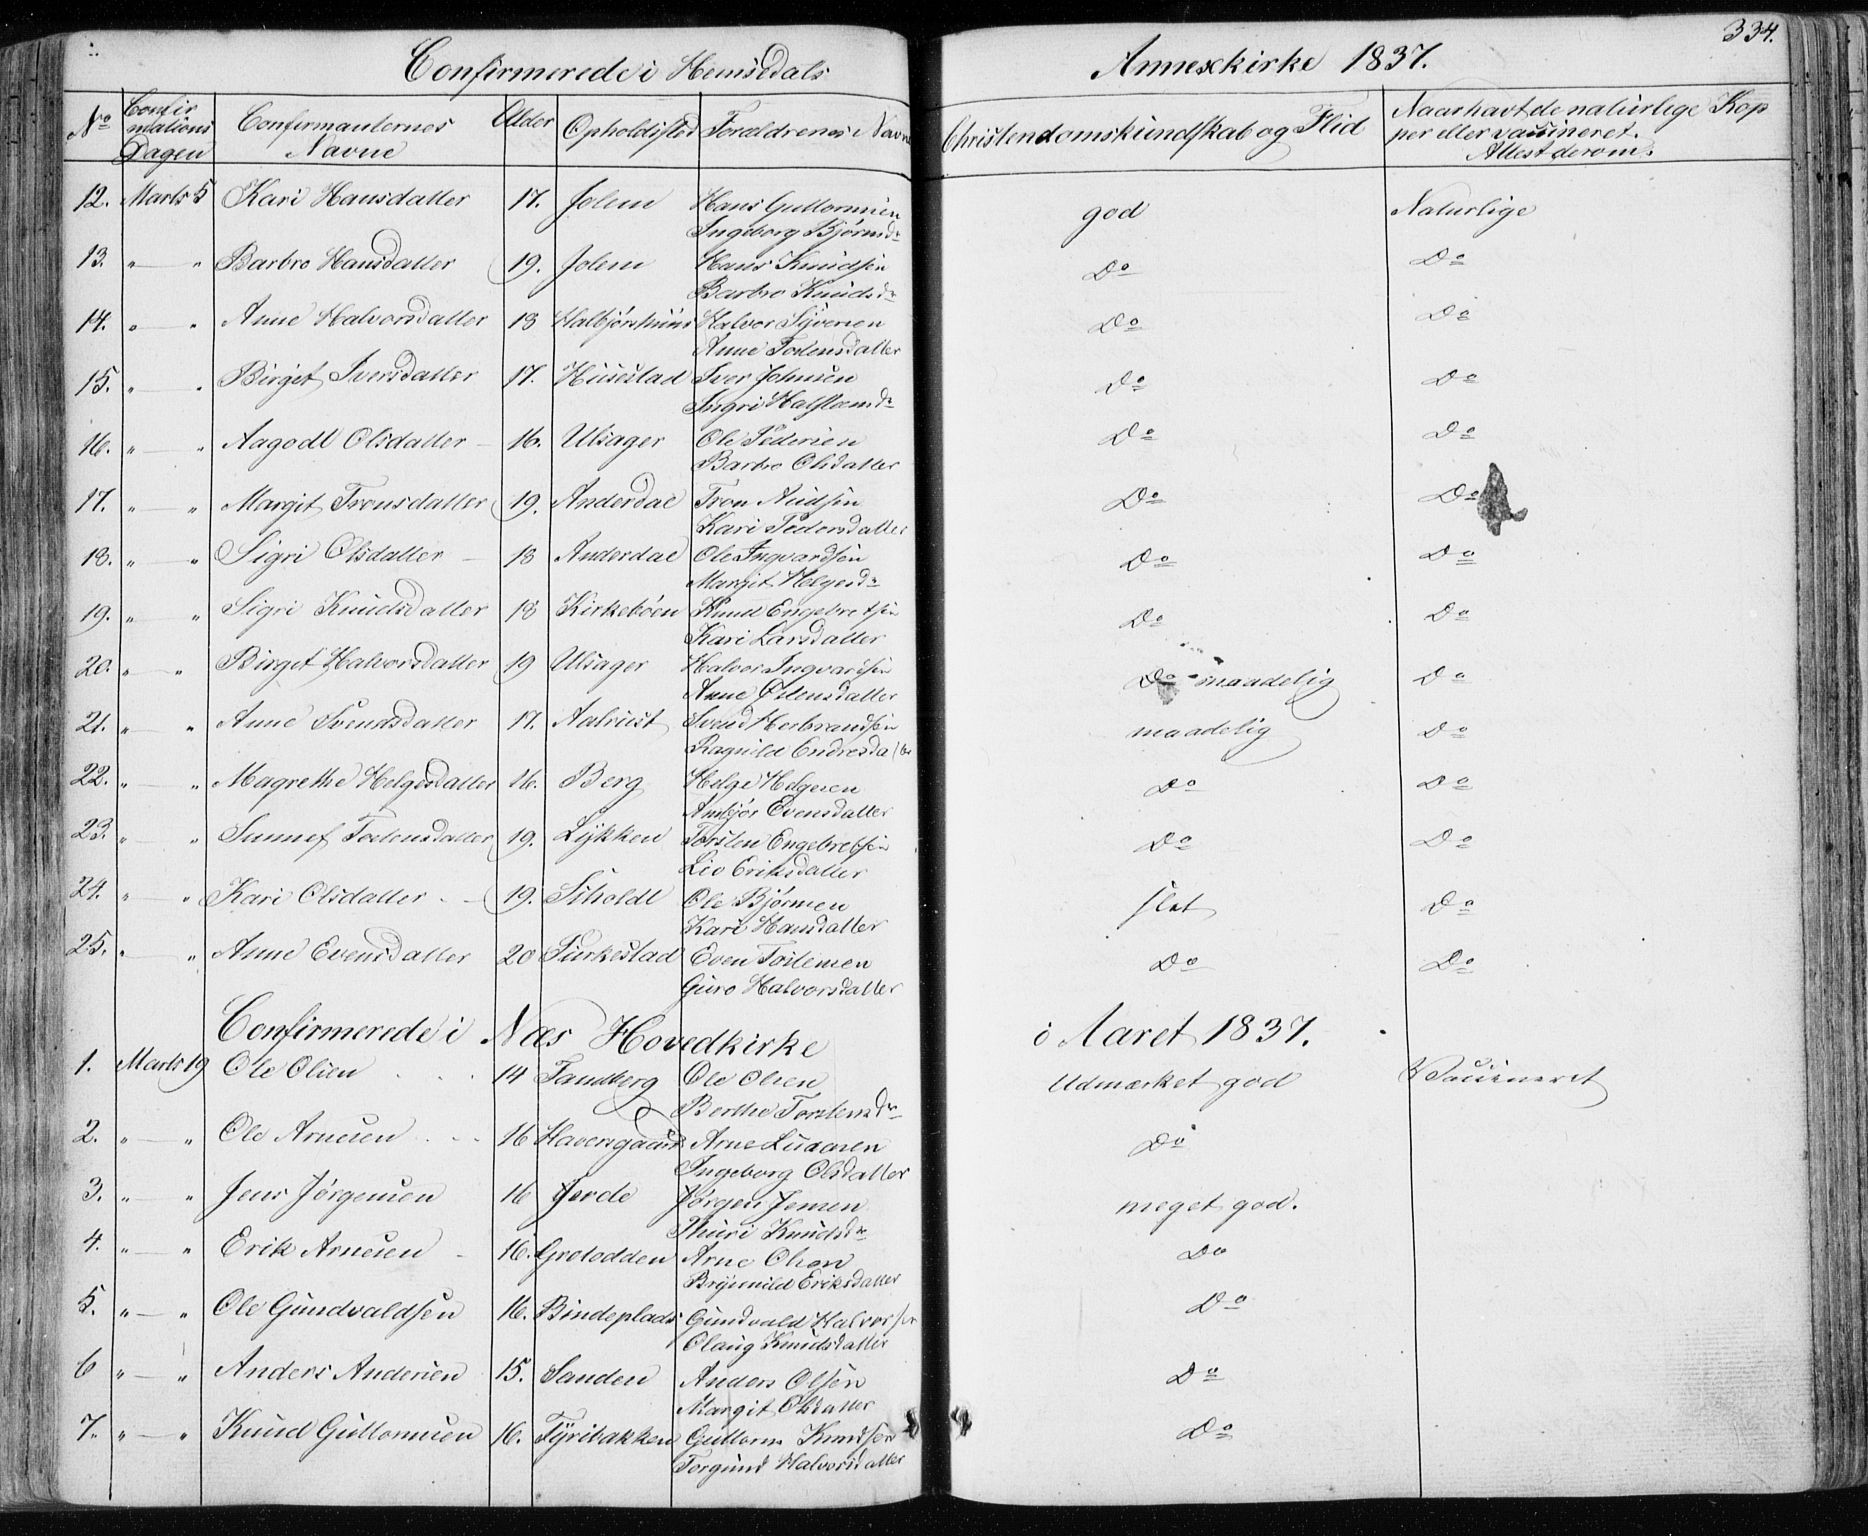 334.
Confirmerede i Hemsedals Annexkirke 1837.
No Confirmations Dagen Confirmanternes Navne Alder Opholdssted Forældrenes Navne Christendomskundskab og Flid Naar havt de naturlige Kopper eller vaccineret. Attest derom.
12. Marts 5 Kari Hansdatter 17. Jolem Hans Guttormsen god Naturlige
Ingeborg Bjørnsdr
13. " — " Barbro Hansdatter 19. Jolem Hans Knudsen Do Do
Barbro Knudsdr
14. " — " Anne Halvorsdatter 18 Halvor Syversen Do Do
Anne Tostensdatter
15. " — " Birget Iversdatter 17. Husestad Iver Johnsen Do Do
Ingri Halstensdr
16. " — " Aagodt Olsdatter — 16. Ulsager Ole Pedersen Do Do
Barbro Olsdatter
17. " — " Margit Tronsdatter 19. Anderdal Tron Do Do
Kari Pedersdatter
18. " — " Sigri Olsdatter — 18 Anderdal Ole Ingvardsen Do Do
Margit Helgesdr
19. " — " Sigri Knudsdatter 18 Kirkebøen Knud Engebretsen Do Do
Kari Larsdatter
20. " — " Birget Halvorsdatter 19 Ulsager Halvor Ingvardsen Do maadelig Do
Anne Østensdatter
21. " — " Anne Svendsdatter 17. Aalrust Svend Herbrandsen maadelig Do
Ragnild Endresdatter
22. " — " Magrethe Helgesdatter 16. Berg Helge Helgesen Do Do
Ambjør Evensdatter
23. " — " Sunnef Tostensdatter 19. Lykken Torsten Engebretsen Do Do
Liv Eriksdatter
24. " — " Kari Olsdatter — 19. Ole Bjørnsen slet Do
Kari Hansdatter
25. " — " Anne Evensdatter 20 Even Tostensen Do Do
Guro Halvorsdatter
Confirmerede i Næs Hovedkirke i Aaret 1837.
1. Marts 19 Ole Olsen 14 Sandberg Ole Olsen Udmærket god Vaccineret
Berthe Torstensdr
2. " — " Ole Arnesen 16 Haversgaard Arne Do
Ingeborg Olsdatter
3. " — " Jens Jørgensen 16 Jerde Jørgen Jensen meget god.
Thuri Knudsdr
4. " — " Erik Arnesen 16. Grotodden Arne Olsen Do
Brynnild Eriksdatter
5. " — " Ole Gundvaldsen 16. Bindeplads Gundvald Halvorsen Do
Olaug Knudsdatter
6 " — " Anders Andersen 15. Sanden Anders Olsen Do
Margit Olsdatter
7. " — " Knud Guttormsen 16. Tyribakken Guttorm Knudsen Do
Torgund Halvorsdatter